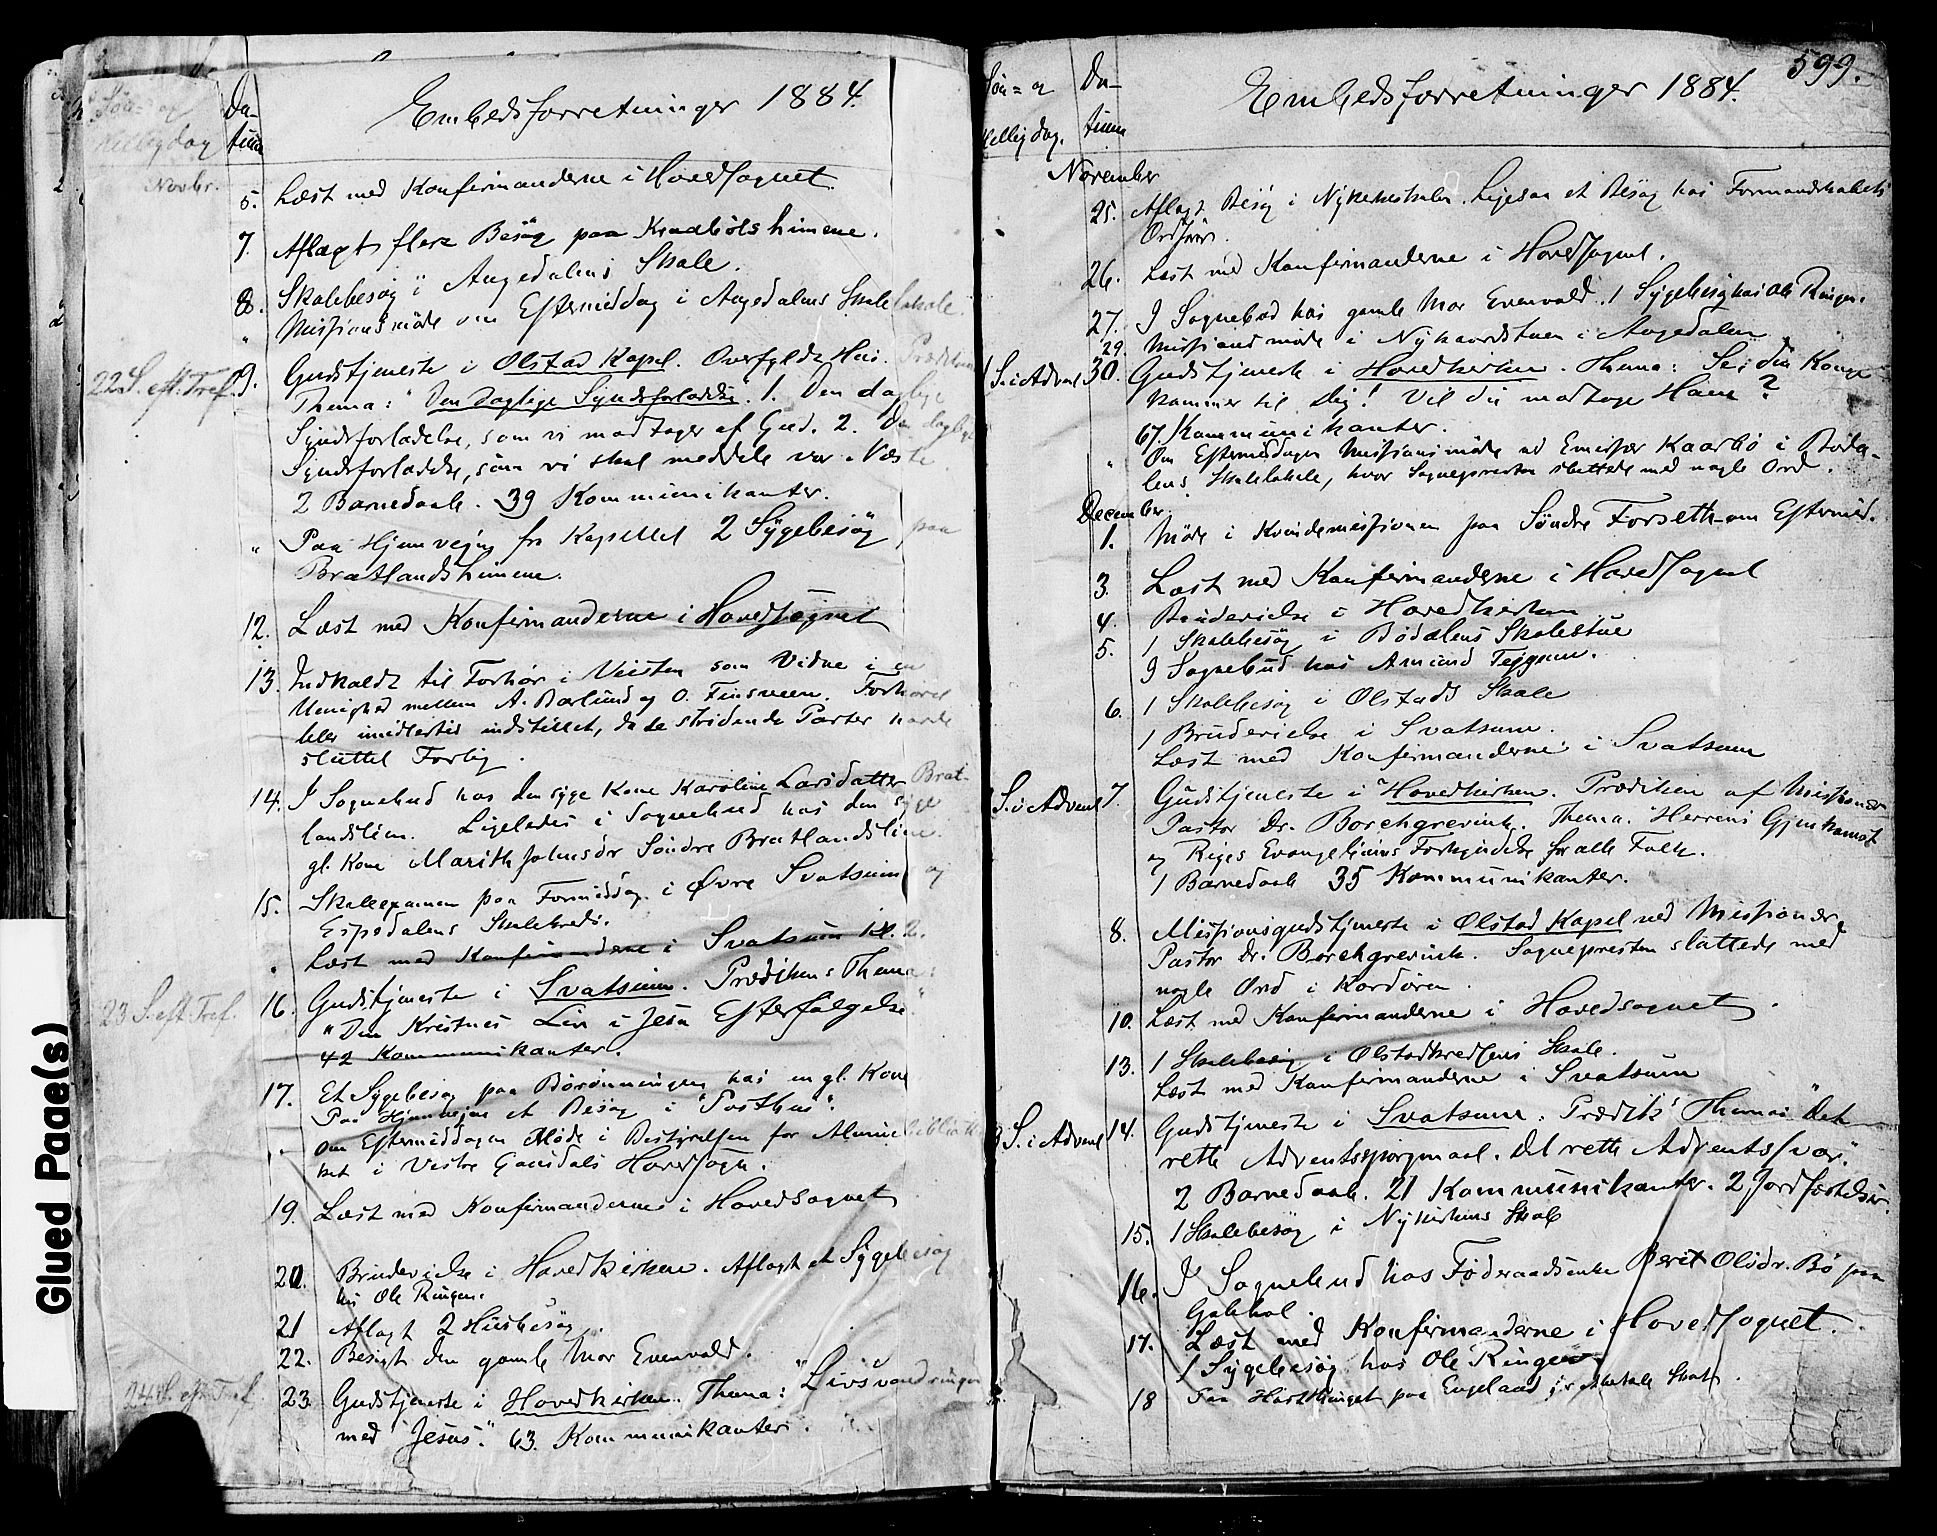 Søn- og Helligdag
Da-
tum
Embedsforretninger 1884.
Novbr.
5. Læst med Konfirmanderne i Hovedsognet
7. Aflagt flere Besøg paa
8. Skolebesøg i Augedalens Skole.
" Missionsmøde om Eftermiddag i Augedalens Skolelokale.
22 S. eft. Tref. 9. Gudstjeneste i Olstad Kapel. Overfyldt Hus.
Thema: "Den daglige Syndsforladelse". 1. Den daglige
Syndsforladelse, som vi modtager af Gud. 2. Den daglige
Syndsforladelse, som vi skal meddele vor Næste
2 Barnedaab. 39 Kommunikanter.
" Paa Hjemvejen fra Kapellet 2 Sygebesøg paa
Bratlandshimene.
12. Læst med Konfirmanderne i Hovedsognet
13. Indkaldt til Forhør i Veisten som Vidne i en
Uenighed mellem A. Barlund og O. Finsveen. Forhøret
blev imidlertid indstillet, da de stridende Parter havde
sluttet Forlig.
14. I Sognebud hos den syge Kone Karoline Larsdatter Brat-
landslien. Ligeledes i Sognebud hos den syge
gl. Kone Marith Johnsdr Søndre Bratlandslien.
15. Skoleexamen paa Formiddag i Øvre Svatsum og
Espedalens Skolekreds.
" Læst med Konfirmanderne i Svatsum Kl. 2.
23 S. eft. Tref. 16. Gudstjeneste i Svatsum. Prædikens Thema:
"Den Kristnes Liv i Jesu Efterfølgelse."
42 Kommunikanter.
17. Et Sygebesøg paa hos en gl. Kone
Paa Hjemvejen et Besøg i "Posthus".
" Om Eftermiddagen Møde i Bestyrelsen for Almuebibliothe-
ket i Vestre Gausdals Hovedsogn.
19. Læst med Konfirmanderne i Hovedsognet
20. Brudevielse i Hovedkirken. Aflagt et Sygebesøg
hos Ole Ringen.
21 Aflagt 2 Husbesøg.
22. Besøgt den gamle Mor Evenvold.
24 S. eft. Tref. 23. Gudstjeneste i Hovedkirken. Thema: "Livsvandringen
med Jesus". 63. Kommunikanter.
599.
Søn- og
Helligdag.
Da-
tum
Embedsforretninger 1884.
November
25. Aflagt Besøg i Nykirkeskolen. Ligesaa et Besøg hos Formandskabets
Ordfører.
26. Læst med Konfirmanderne i Hovedsognet.
27. I Sognebud hos gamle Mor Evenvold. 1 Sygebesøg hos Ole Ringen.
29. Missionsmøde i Nykaardstuen i Augedalen
1 S. i Advent 30. Gudstjeneste i Hovedkirken. Thema: Se, din Konge
kommer til Dig! Vil du modtage Ham?
67. Kommunikanter.
" Om Eftermiddagen Missionsmøde ved Emissær Kaarbø i Bøda-
lens Skolelokale, hvor Sognepresten sluttede med nogle Ord.
December.
1. Møde i Kvindemissionen paa Søndre Forseth om Eftermid.
3. Læst med Konfirmanderne i Hovedsognet
4. Brudevielse i Hovedkirken
5. 1 Skolebesøg i Bødalens Skolestue
I Sognebud hos Amund
6. 1 Skolebesøg i Olstads Skole
1 Brudevielse i Svatsum.
Læst med Konfirmanderne i Svatsum
2 S. i Advent 7. Gudstjeneste i Hovedkirken. Prædiken af Missionær
Pastor Dr. Borchgrevink. Thema: Herrens Gjenkomst
og Riges Evangeliums Forkyndelse for alle Folk.
1 Barnedaab 35 Kommunikanter.
8. Missionsgudstjeneste i Olstad Kapel ved Missionær
Pastor Dr. Borchgrevink. Sognepresten sluttede med
nogle Ord i Kordøren.
10. Læst med Konfirmanderne i Hovedsognet.
13. 1 Skolebesøg i Olstadkredsens Skole.
Læst med Konfirmanderne i Svatsum
3 S. i Advent 14. Gudstjeneste i Svatsum. Prædik. Thema: "Det
rette Adventsspørgsmaal. Det rette Adventssvar."
2 Barnedaab. 21 Kommunikanter. 2 Jordfæstelser.
15. 1 Skolebesøg i Nykirkens Skole
16. I Sognebud hos Føderaadsenke Berit Olsdr. Bø paa
17. Læst med Konfirmanderne i Hovedsognet.
1 Sygebesøg hos Ole Ringen
18 Paa Høstthinget paa Engeland for at betale Skat.
Glued Page(s)